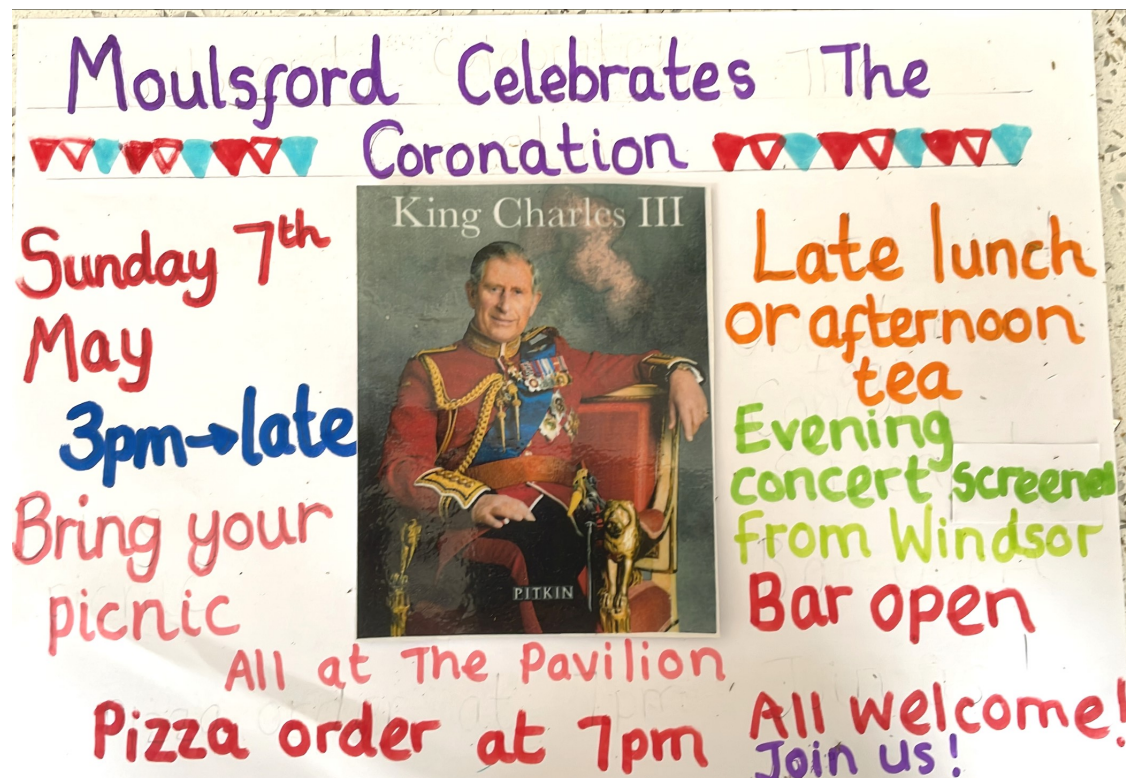 Moulsford Celebrates The
Coronation
Sunday 7th
May
3pm→late
Bring your
picnic
King Charles III
PITKIN
Late lunch
or afternoon
tea
Evening
concert screened
from Windsor
Bar open
All at The Pavilion
Pizza order at 7pm
All welcome!
Join us!